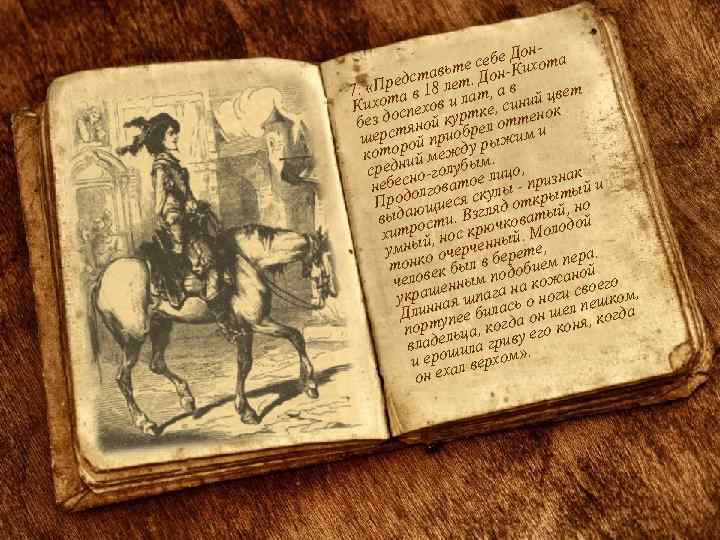 7. «Представьте себе Дон-
Кихота в 18 лет. Дон-Кихота
без доспехов и лат, а в
шерстяной куртке, синий цвет
которой приобрел оттенок
средний между рыжим и
небесно-голубым.
Продолговатое лицо,
выдающиеся скулы - признак
хитрости. Взгляд открытый и
умный, нос крючковатый, но
тонко очерченный. Молодой
человек был в берете,
украшенным подобием пера.
Длинная шпага на кожаной
портупее билась о ноги своего
владельца, когда он шел пешком,
и ерошила гриву его коня, когда
он ехал верхом».